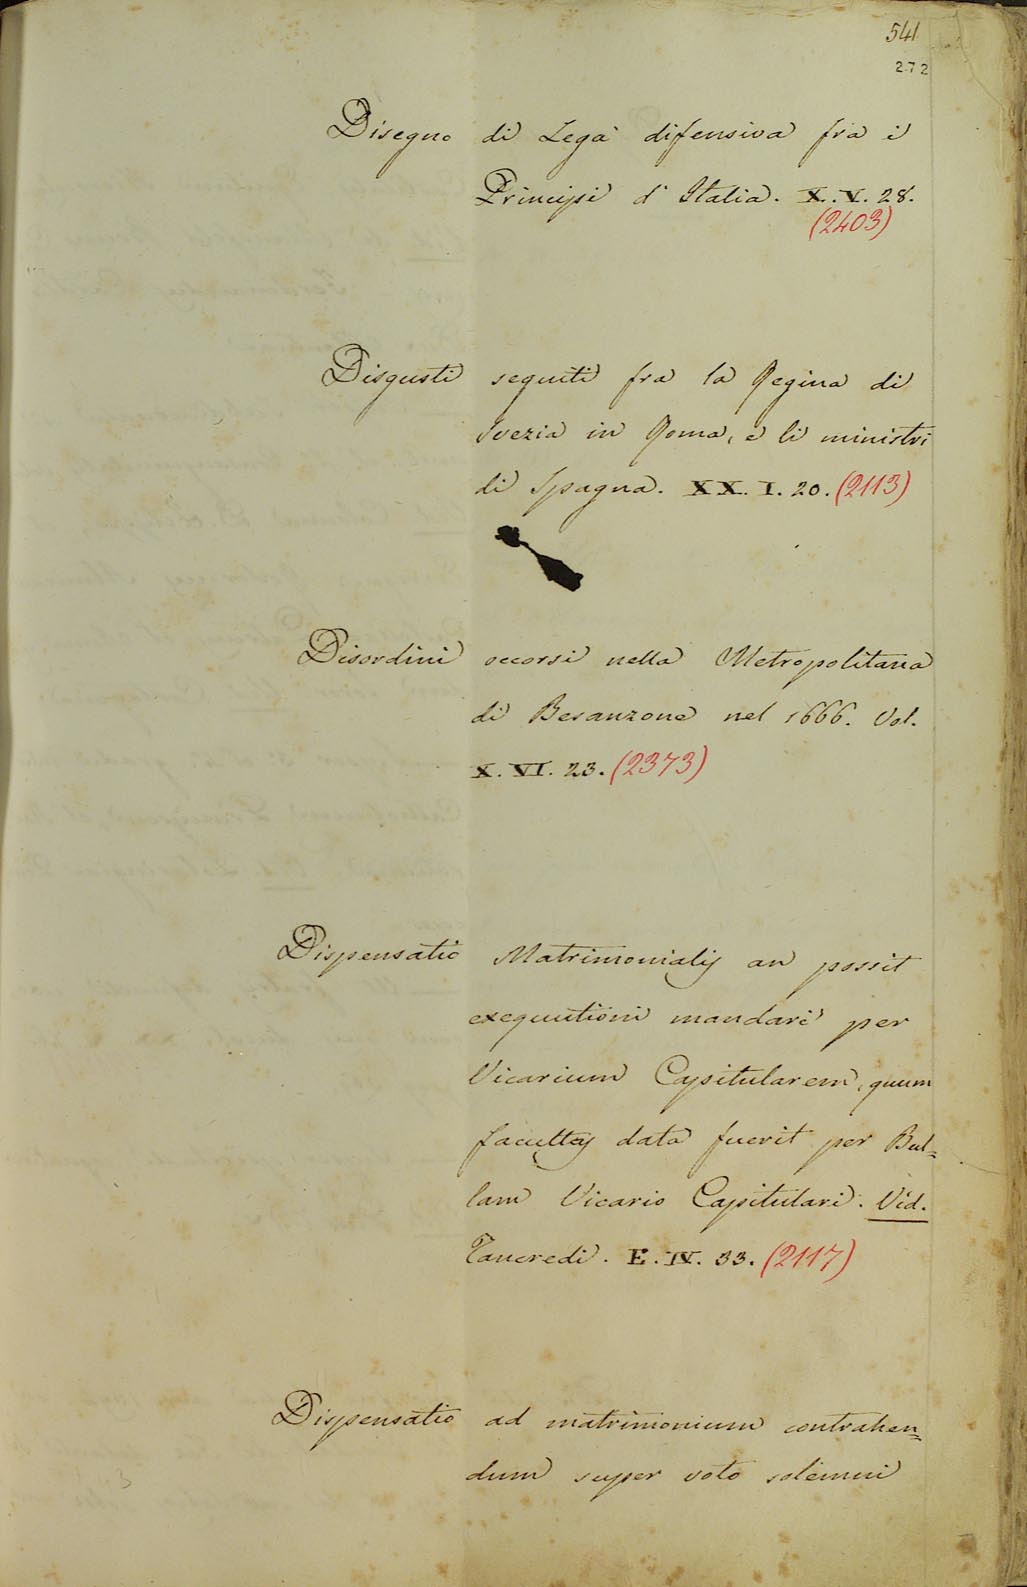 541
272
Disegno di Lega difensiva fra i
Principi d'Italia. X. V. 28.
(2403)
Disgusti seguiti fra la Regina di
Svezia in Roma, e li ministri
di Spagna. XX. I. 20. (2113)
Disordini occorsi nella Metropolitana
di Besanzone nel 1666. Vol.
X. VI. 23. (2373)
Dispensatio Matrimonialis an possit
exequutioni mandari per
Vicarium Capitularem, quum
facultas data fuerit per Bul=
lam Vicario Capitulari. Vid.
Tancredi. E. IV. 33. (2117)
Dispensatio ad matrimonium contrahen=
dum super voto solemni